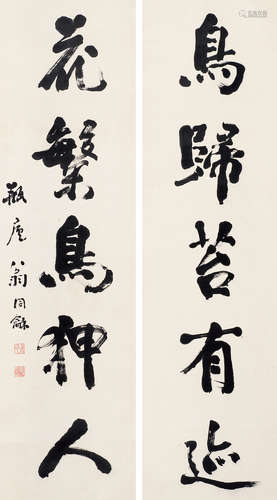 鳥歸苔有迹
花繁鳥狎人
瓶廬翁同龢